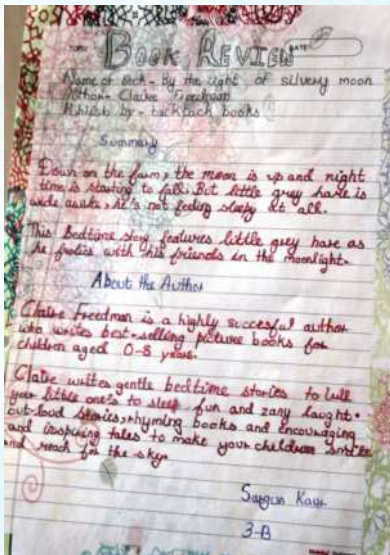 BOOK REVIEW
DATE
Name of book - By the light of silvery moon
Author - Claire Freedman
Publish by - tacktack books
Summary
Down on the farm, the moon is up and night
time is starting to fall. But little grey hare is
wide awake, he's not feeling sleepy at all.
This Bedtime story features little grey hare as
he frolics with his friends in the moonlight.
About the Author
Claire Freedman is a highly succesful author
who writes best-selling picture books for
children aged 0-8 years.
Claire writes gentle bedtime stories to lull
your little one's to sleep fun and zany laught-
out-loud stories, rhyming books and encouraging
and inspiring tales to make your children smile
and reach for the sky.
Sargun Kaur
3-B